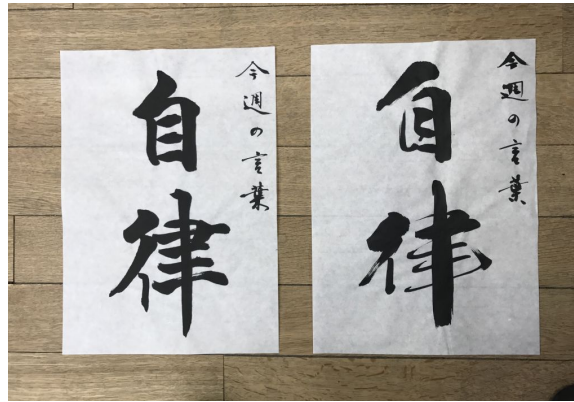 今週の言葉
自律
今週の言葉
自律